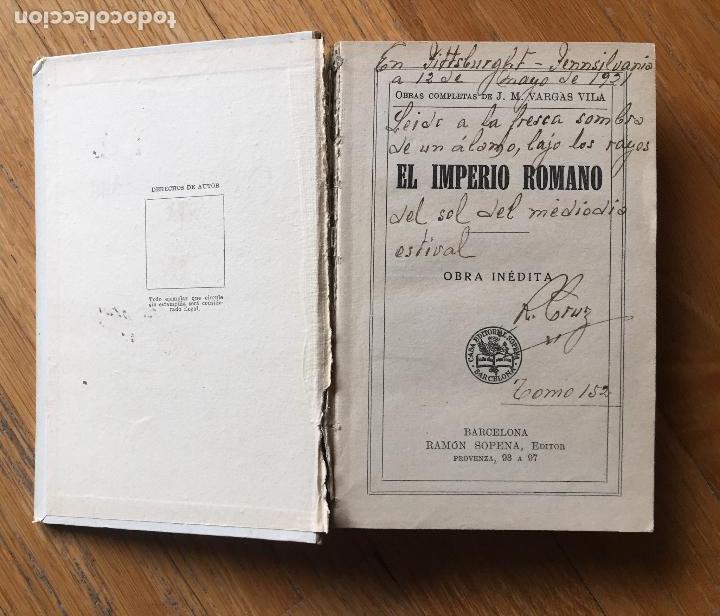 todocoleccion.net
DERECHOS DE AUTOR
Todo ejemplar que circule
sin estampilla, será conside-
rado ilegal.
En Pittsburght - Pennsilvania
a 12 de mayo de 1921
OBRAS COMPLETAS DE J. M. VARGAS VILA
Leido a la fresca sombra
de un álamo, bajo los rayos
EL IMPERIO ROMANO
del sol del mediodia
estival
OBRA INÉDITA
R. Cruz
CASA EDITORIAL SOPENA
BARCELONA
Tomo 152
BARCELONA
RAMÓN SOPENA, EDITOR
PROVENZA, 93 A 97
todocoleccion.net